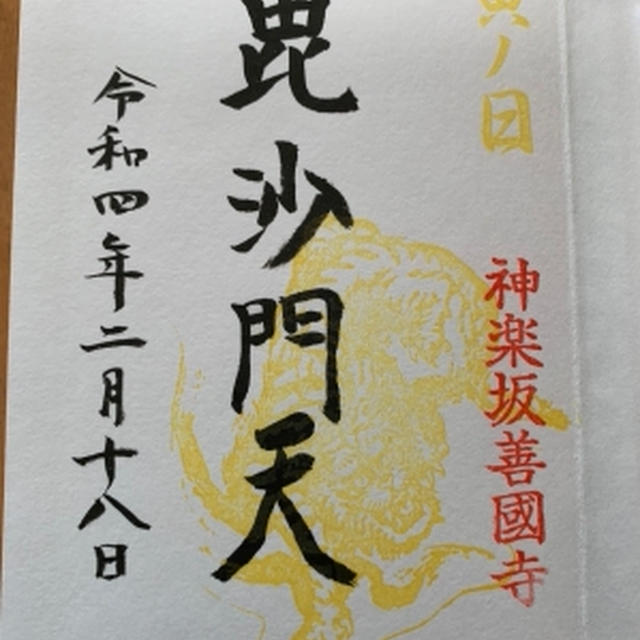 寅ノ日
神楽坂善國寺
毘沙門天
令和四年二月十八日